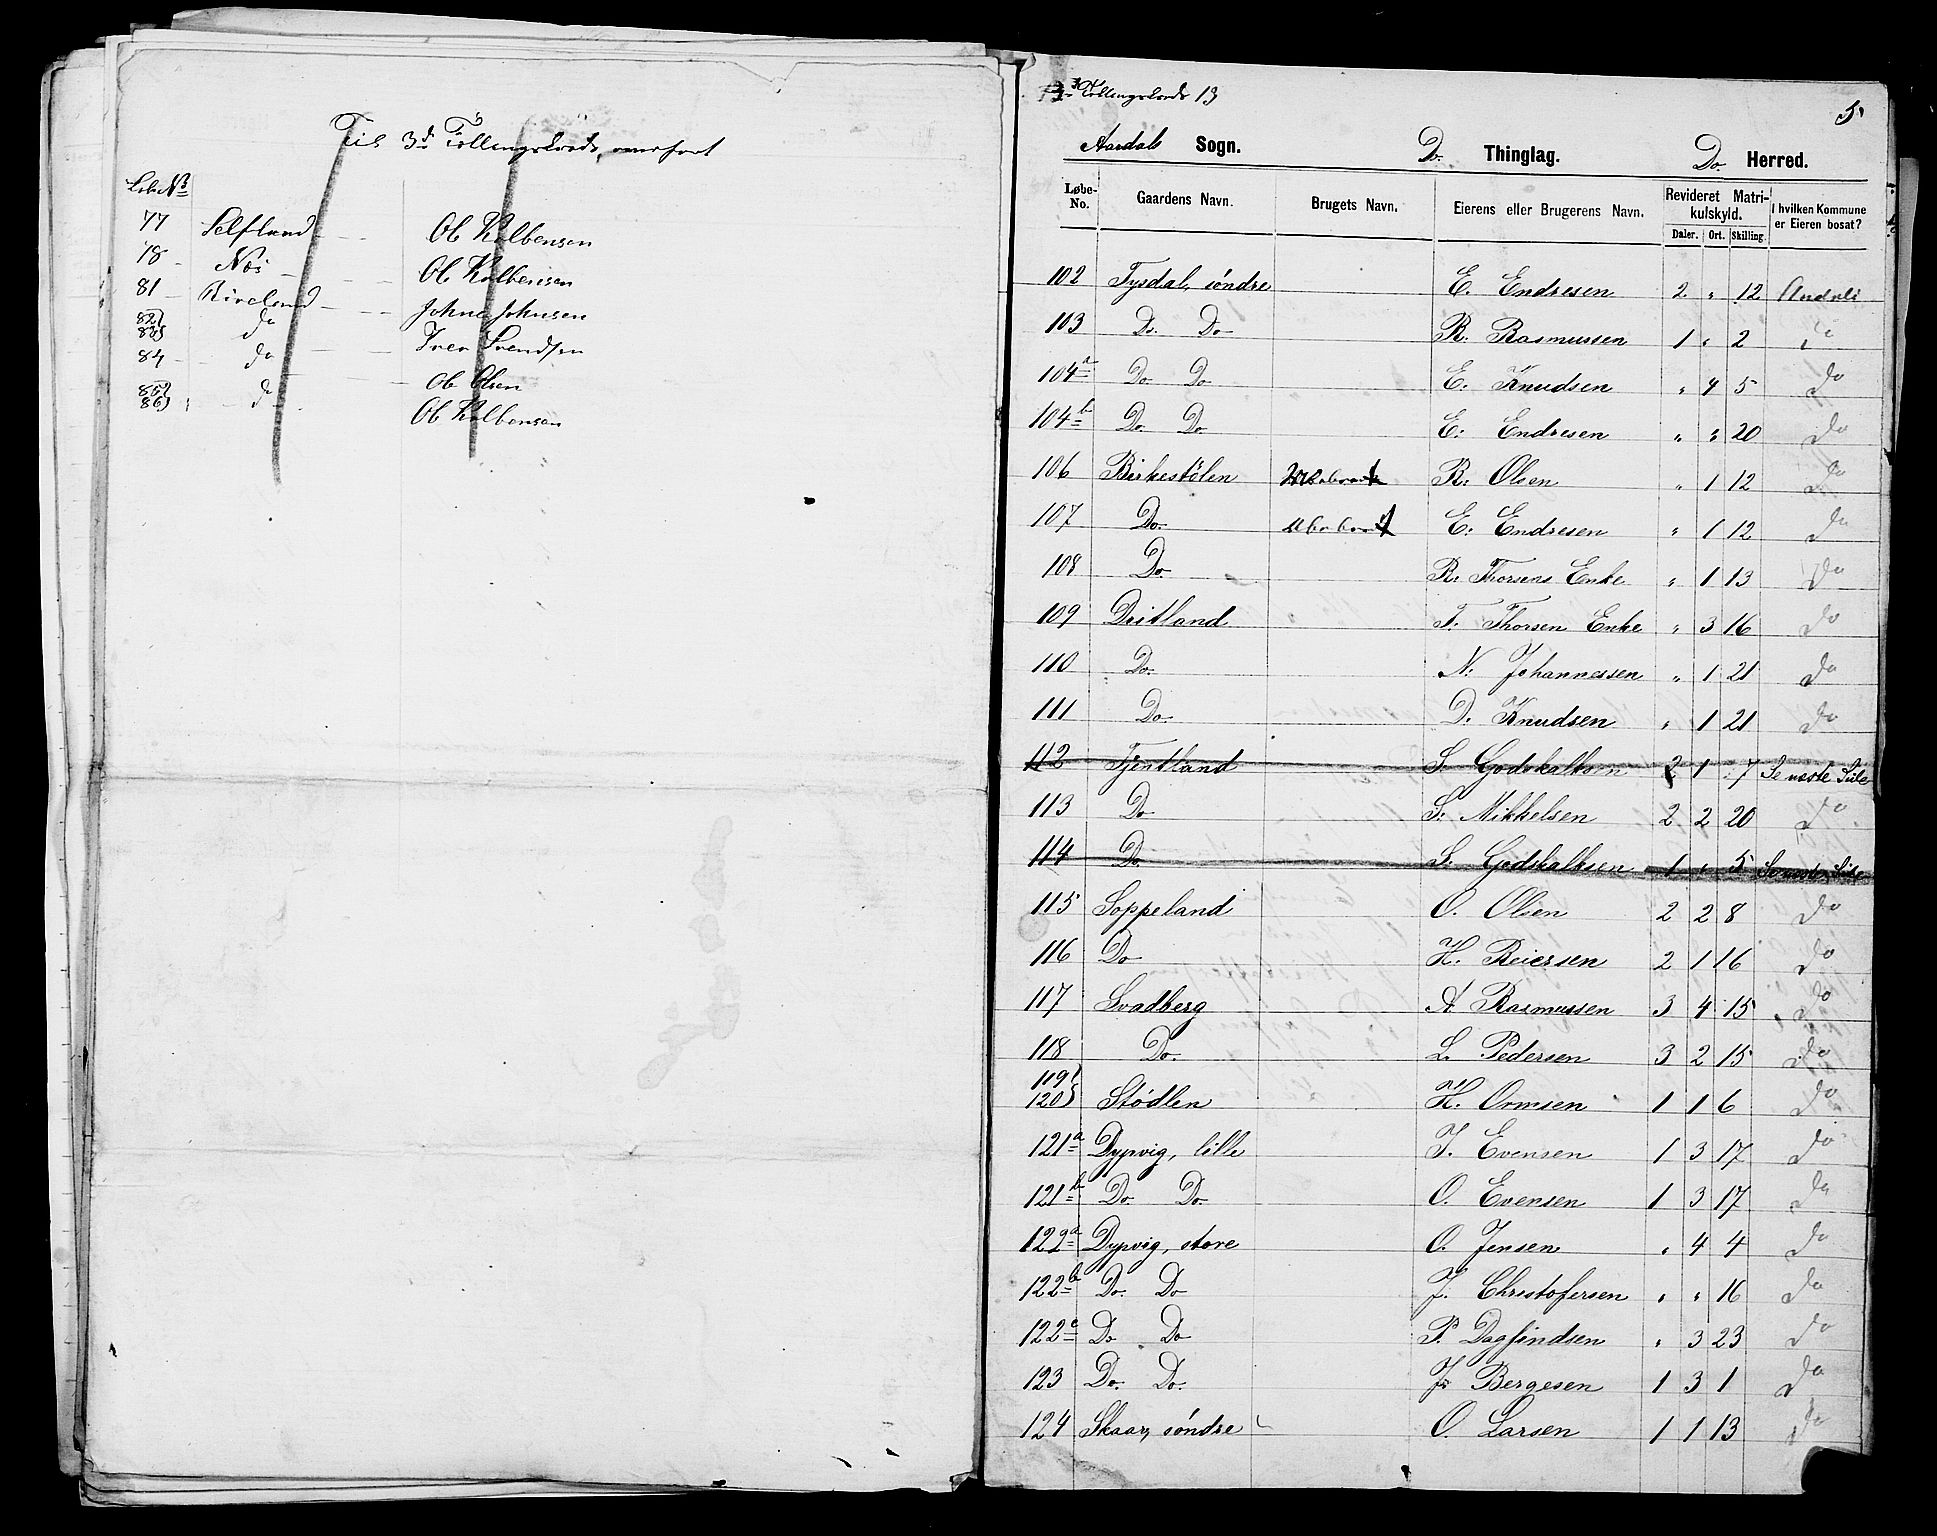 Til 3d Tællingskreds, overført
Lob No
77 Selfland Ol. Kolbensen
78 Næs Ol. Kolbensen
81 Riveland John Johnsen
82) 83) do Iver Svendsen
84 do Ol. Olsen
85) 86) do Ol. Kolbensen
3 Tællingskreds 13
5
Aardals Sogn. Do. Thinglag. Do. Herred.
Løbe-No. Gaardens Navn. Brugets Navn. Eierens eller Brugerens Navn. Revideret Matrikulskyld. I hvilken Kommune er Eieren bosat?
Daler. Ort. Skilling.
102 Tysdal, söndre E. Endresen 2 " 12 Aardal
103 Do. Do R. Rasmussen 1 " 2 do
104a Do Do E. Knudsen " 4 5 do
104b Do. Do. E. Endresen " " 20 do
106 Birkestölen R. Olsen " 1 12 do
107 Do. E. Endresen " 1 12 do
108 Do R. Thorsens Enke " 1 13 do
109 Dritland T. Thorsen Enke " 3 16 do
110 Do. N. Johannessen " 1 21 do
111 Do D. Knudsen " 1 21 do
112 Tjentland S. Godskalksen 2 1 7 Se næste Side
113 Do S. Mikkelsen 2 2 20 do
114 Do S. Godskalksen 1 " 5 Se næste Side
115 Soppeland O. Olsen 2 2 8 do
116 Do H. Reiersen 2 1 16 do
117 Svadberg A. Rasmussen 3 4 15 do
118 Do. L. Pedersen 3 2 15 do
119) 120) Stödlen H. Ormsen 1 1 6 do
121a Dypvig, lille T. Evensen 1 3 17 do
121b Do. Do. O. Evensen 1 3 17 do
122a Dypvig, store O. Jensen " 4 4 do
122b Do. Do J. Christofersen " " 16 do
122c Do Do P. Dagfindsen " 3 23 do
123 Do. Do. J. Bergesen 1 3 1 do
124 Skaar, söndre O. Larsen 1 1 13 do